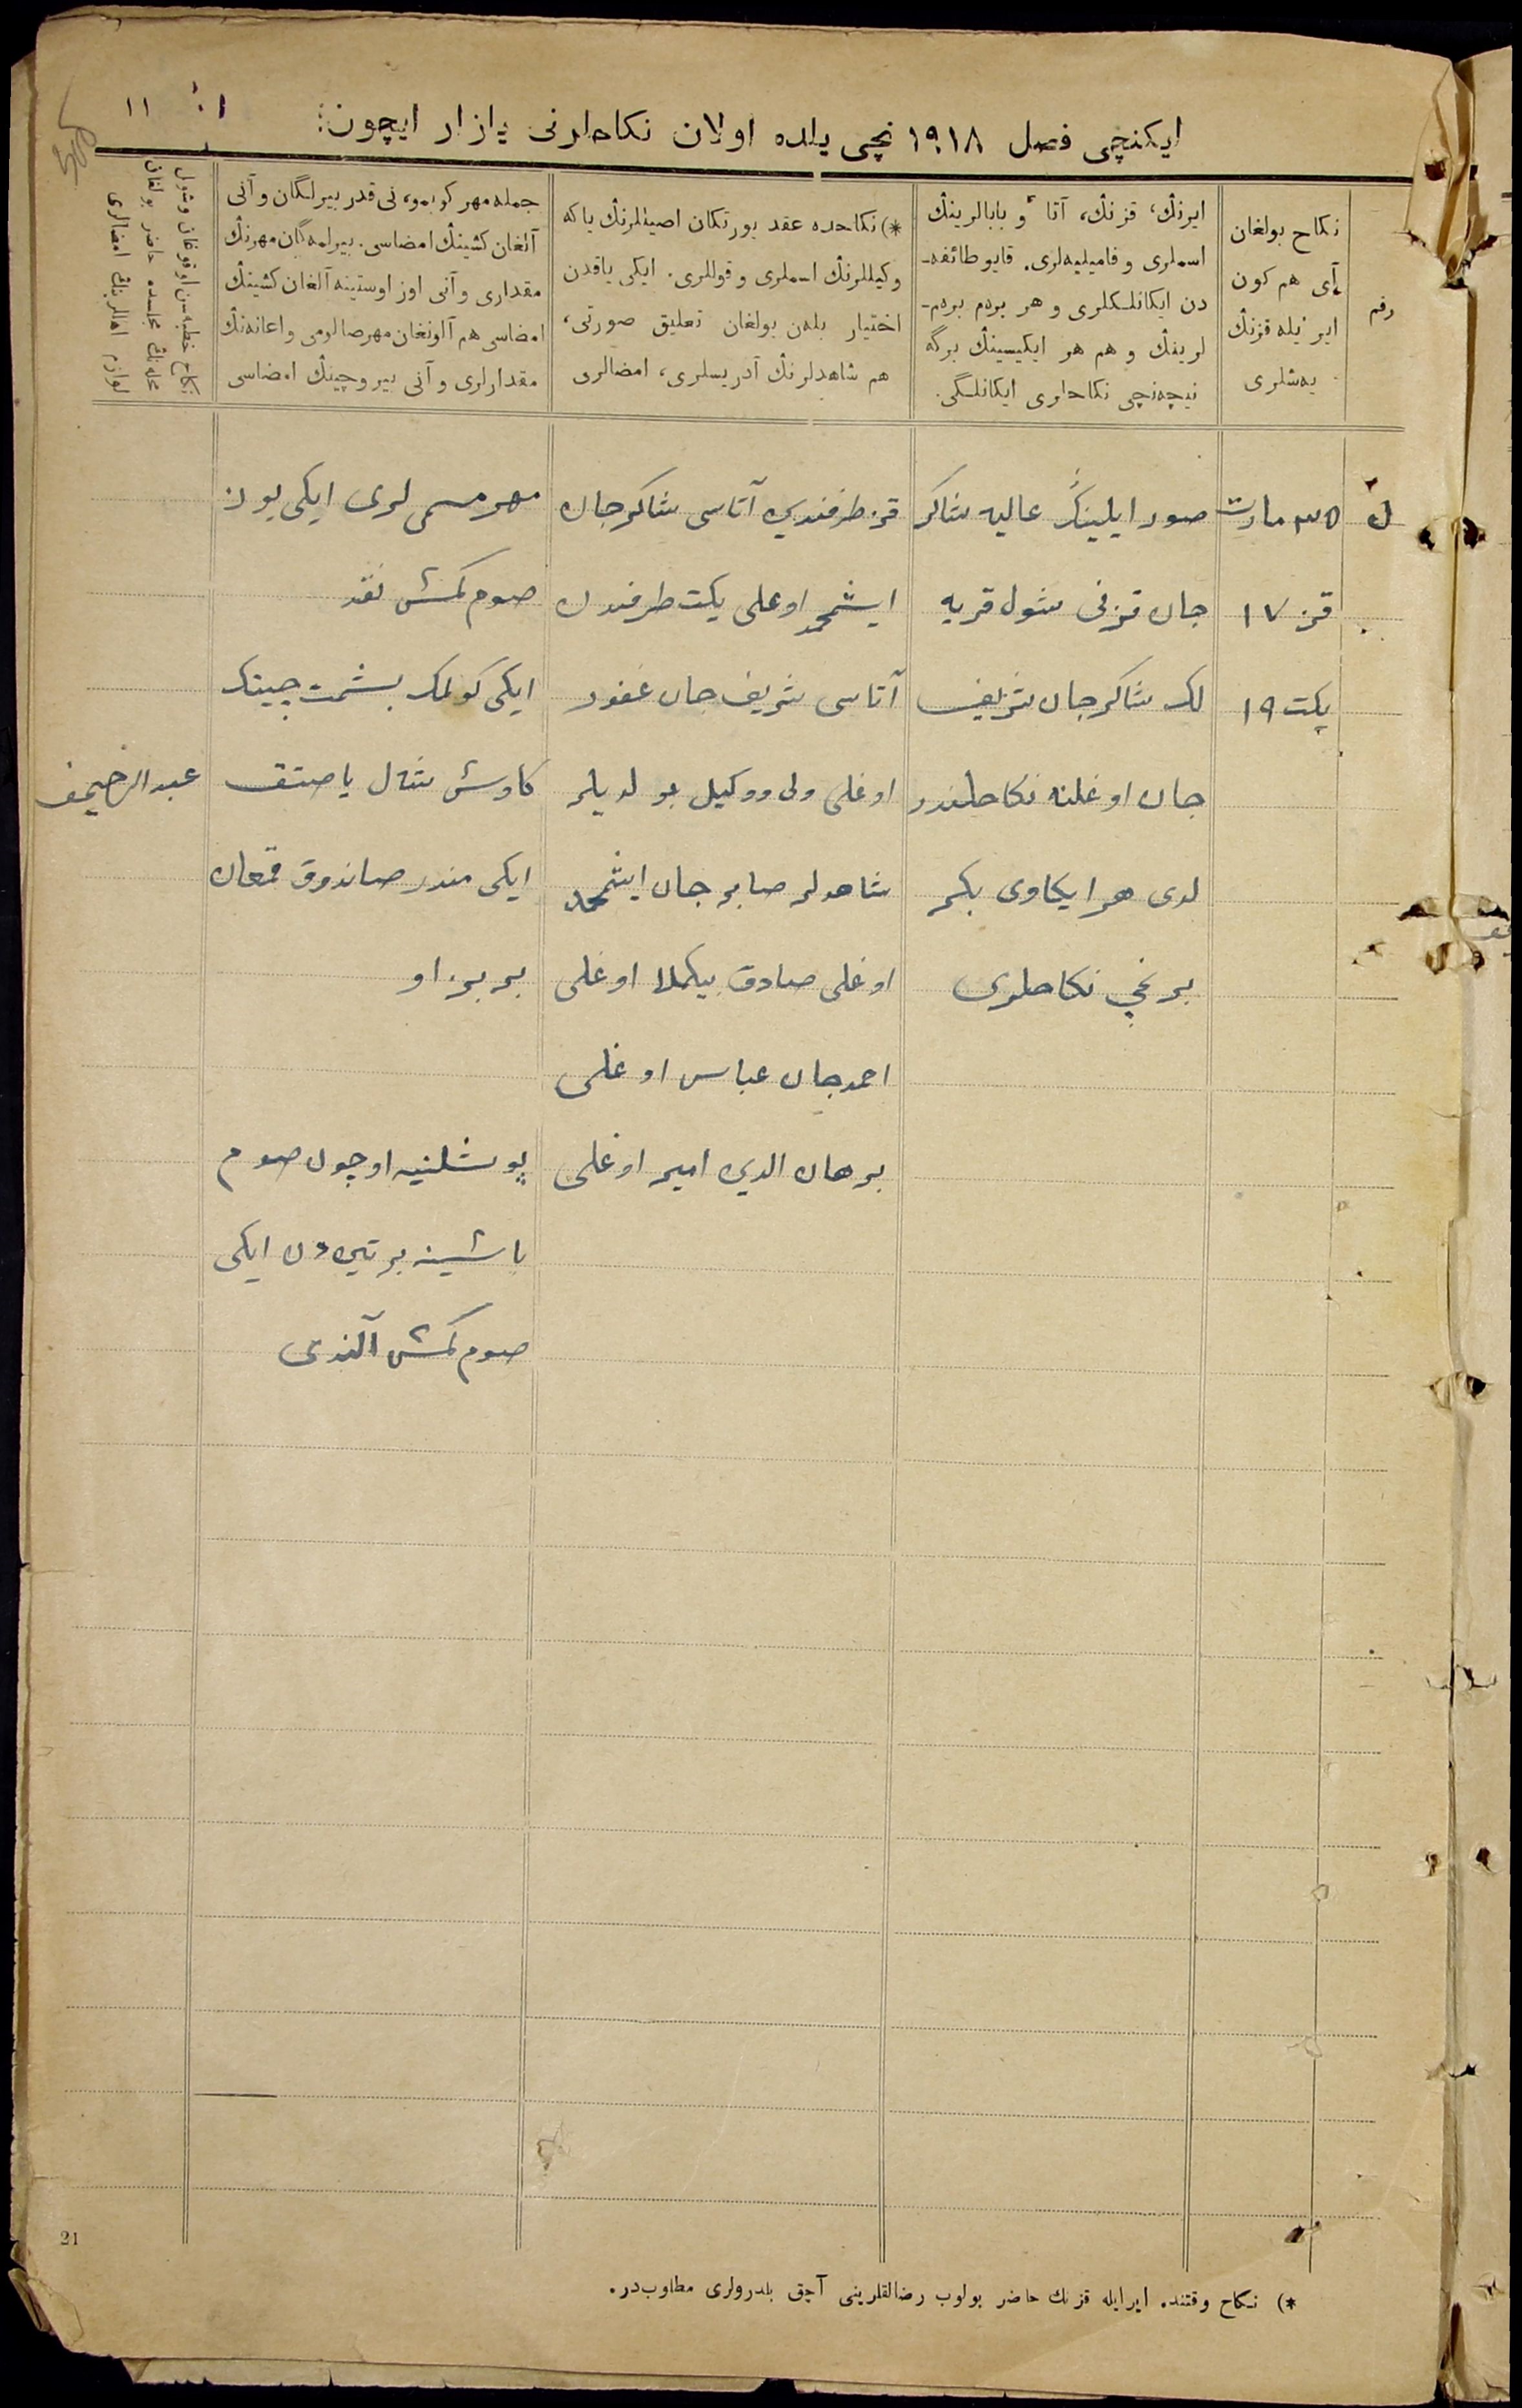 ایكنچی فصل ١٩١٨ نچی یلده اولان نكاحلرنی یازار ایچون:
١١
رقم
نكاح بولغان
آی هم كون
ایر ئیله قزنڭ
یەشلری
ایرنڭ، قزنڭ، آتا و بابالرینڭ
اسملری و فامیلیەلری. قایو طائفه‌ـ
دن ایكانلـكلری و هر بردم بردم‌ـ
لرینڭ و هم هر ایكیسینڭ برگه
نیچەنچی نكاحلری ایكانلـگی.
*) نكاحده عقد یورتكان اصیللرنڭ یا كه
وكیللرنڭ اسملری و قوللری. ایكی یاقدن
اختیار بلەن بولغان تعلیق صورتی،
هم شاهدلرنڭ آدریسلری، امضالری
جمله مهر كوبمو، نی قدر بیرلگان و آنی
آلغان كشینڭ امضاسی. بیرلمەگان مهرنڭ
مقداری و آنی اوز اوستینه آلغان كشینڭ
امضاسی هم آلونغان مهر صالومی و اعانەنڭ
مقدارلری و آنی بیروچینڭ امضاسی
نكاح خطبەسن اوقوغان و شول
محلەنڭ مجلسده حاضر بولغان
لوازم اهالرینڭ امضالری
٢٥ مارت
قز ١٧
یكت ١٩
صور ایلینڭ عالیه شاكر
جان قزنی شول قریه
لك شاكرجان شریف
جان اوغلنه نكاحلندر
لدی هر ایكاوی بكر
برنچی نكاحلری
قز طرفندین آتاسی شاكرجان
ایشمحمد اوغلی یكت طرفندن
آتاسی شریف جان غفور
اوغلی ولی و وكیل بولدیلر
شاهدلر صابرجان ایشمحمد
اوغلی صادق بیكملا اوغلی
احمدجان عباس اوغلی
برهان الدین امیر اوغلی
مهر مسمی لری ایكی یوز
صوم كمش نقد
ایكی كولمك بشمت چیتك
كاوش شال یاصتق
ایكی مندر صاندوق قمغان
بر بزاو
پوشلنیه اوچون صوم
باشینه بر تین دن ایكی
صوم كمش آلندی
عبدالرحیمف
*) نكاح وقتنده ایر ایله قزنڭ حاضر بولوب رضالقلرینی آچق بلدرولری مطلوب‌در.
21